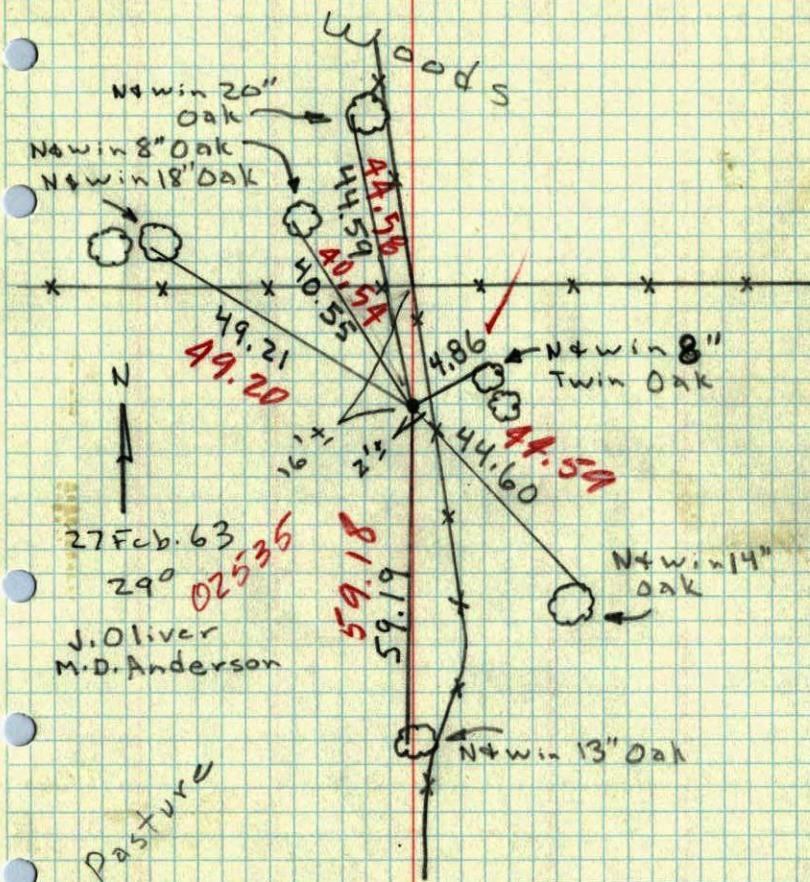 Woods
N&W in 20"
Oak
N&W in 8" Oak
N&W in 18" Oak
44.59
44.58
40.55
40.54
49.21
49.20
4.86
N&W in 8"
Twin Oak
N
16'±
2'±
44.60
44.59
27 Feb. 63
29°
02535
59.18
59.19
J. Oliver
M.D. Anderson
N&W in 14"
Oak
N&W in 13" Oak
Pasture